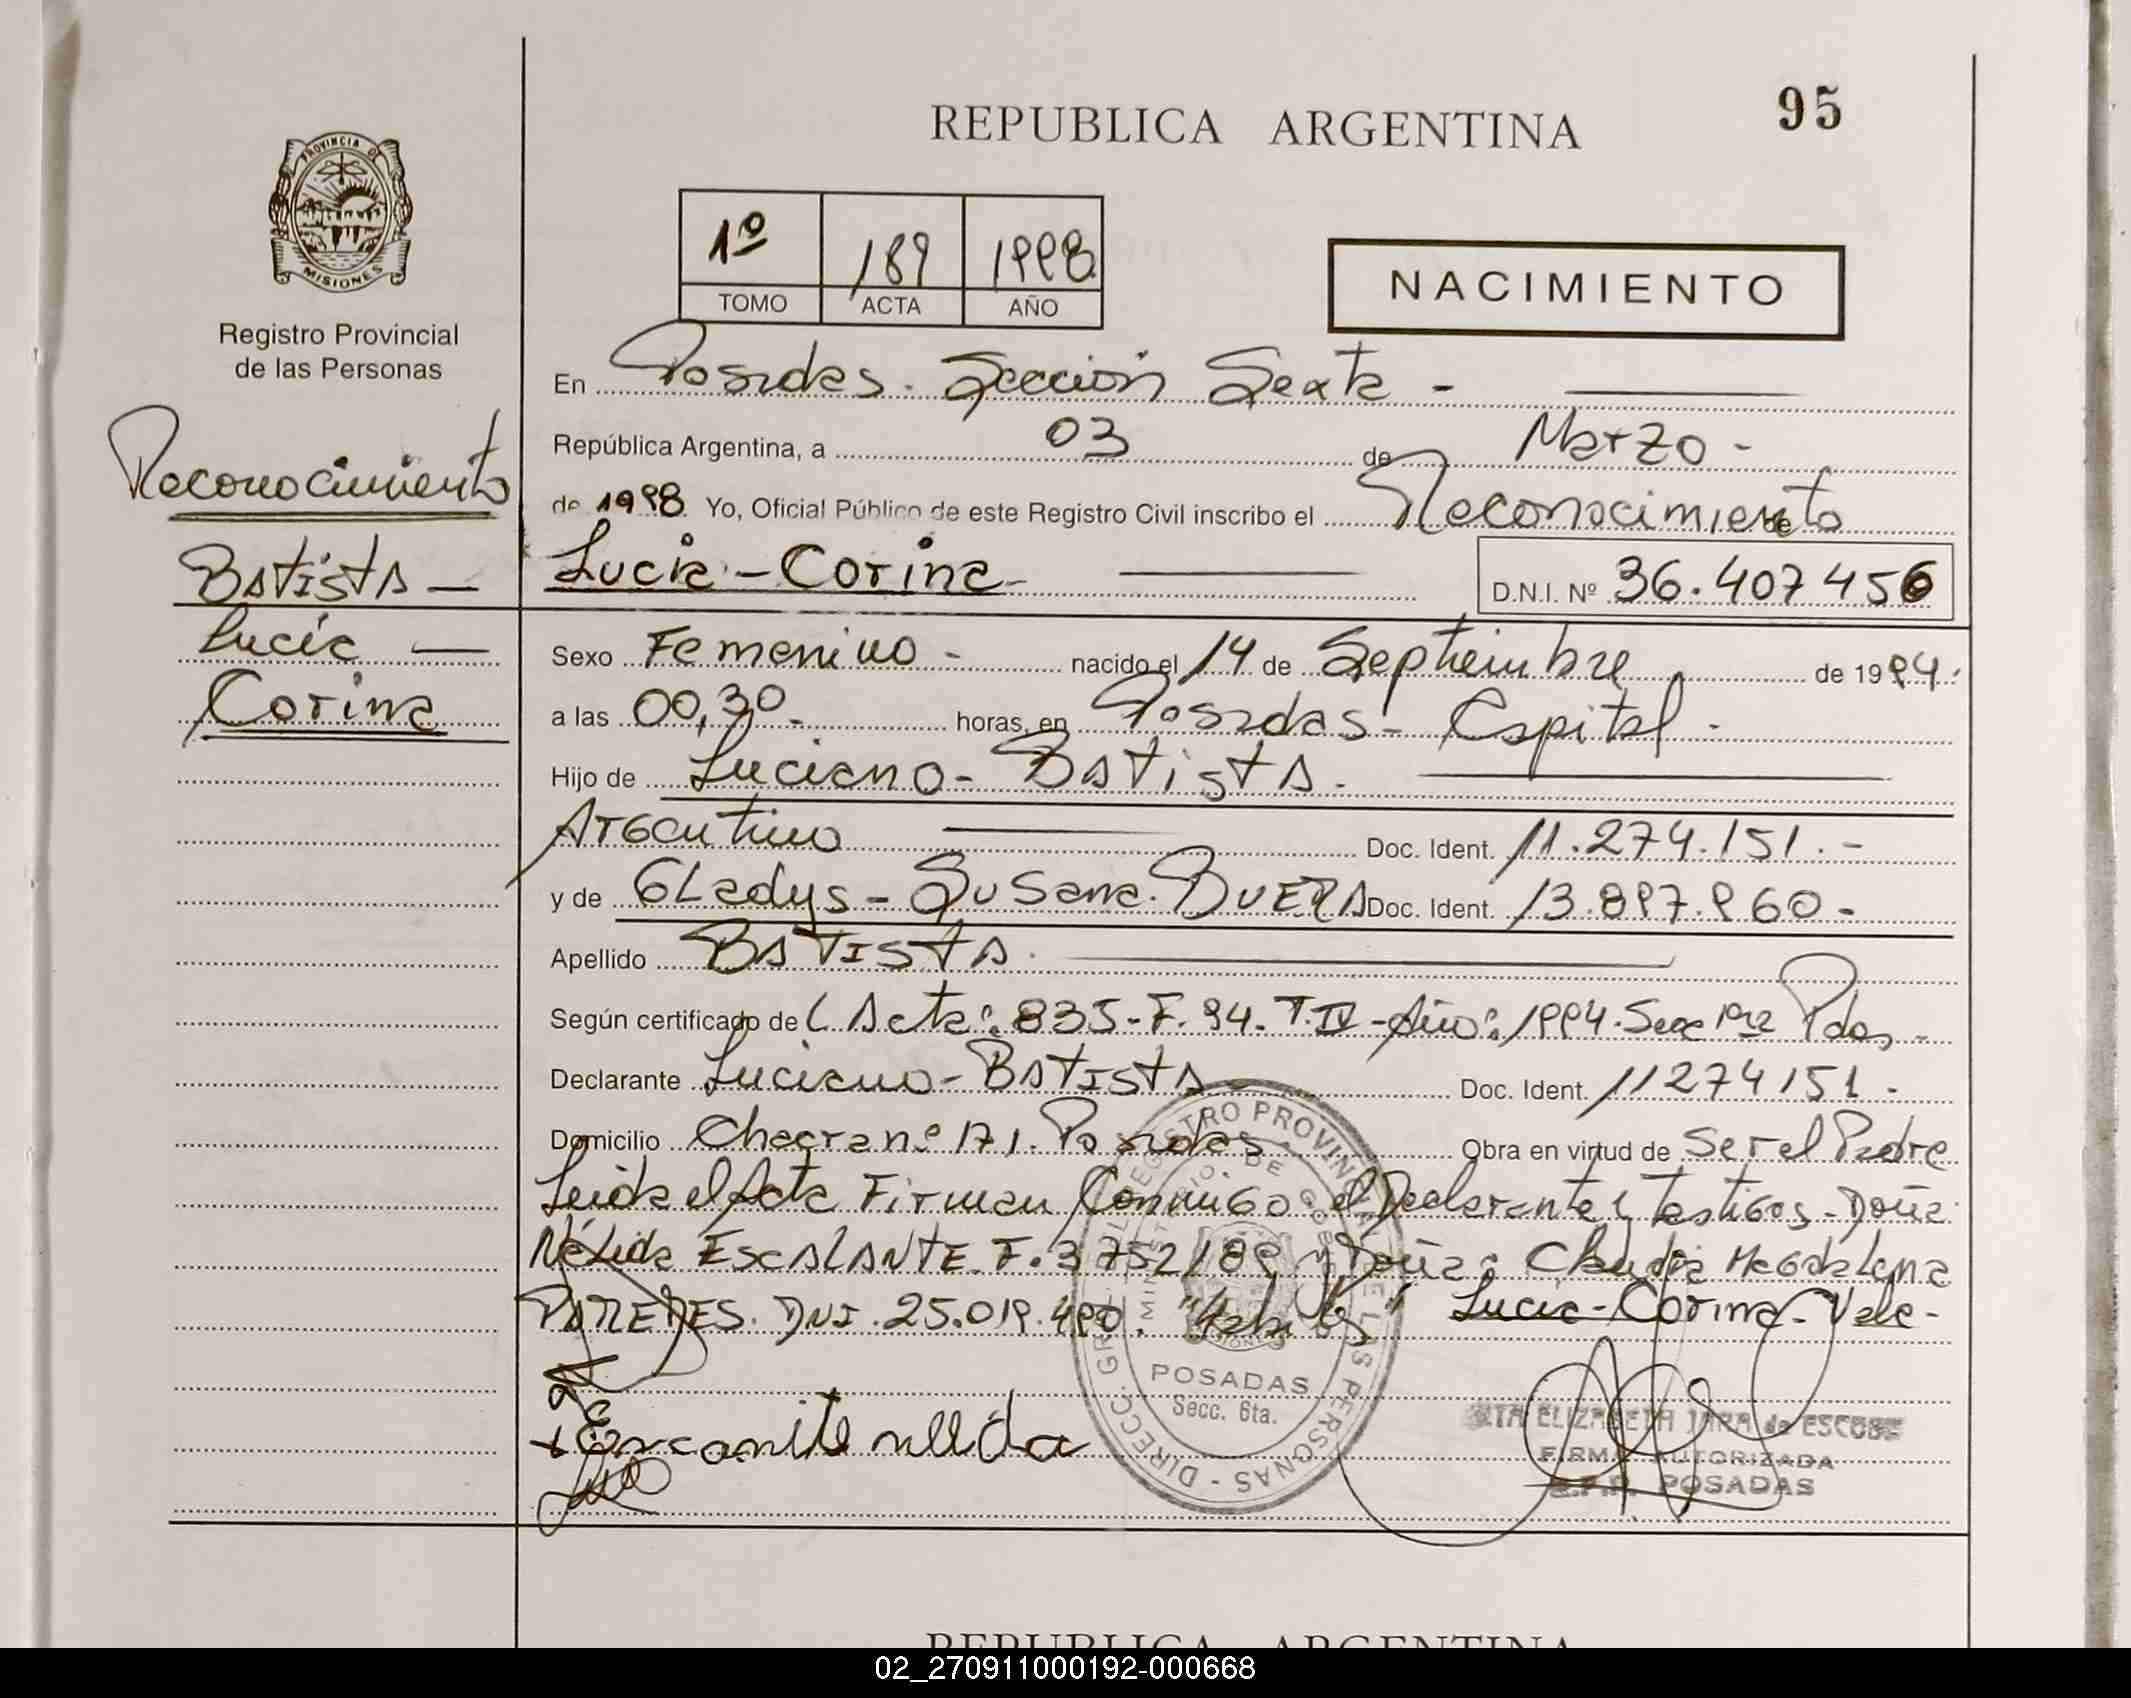 REPUBLICA ARGENTINA
95
PROVINCIA DE
MISIONES
Registro Provincial
de las Personas
1º 189 1998
TOMO ACTA AÑO
NACIMIENTO
En Posadas. Sección Sexta -
República Argentina, a 03 de Marzo -
de 1998 Yo, Oficial Público de este Registro Civil inscribo el Reconocimiento
de
Lucia - Corina -
D.N.I. Nº 36.407 456
Reconocimiento
Batista -
Lucia -
Corina
Sexo Femenino - nacido el 14 de Septiembre de 1994.
a las 00,30 - horas, en Posadas - Capital -
Hijo de Luciano - Batista -
Argentino Doc. Ident. 11.274.151. -
y de Gladys - Susana. BUERA Doc. Ident. 13.897.960 -
Apellido BATISTA.
Según certificado de Acta: 835 - F. 94 - T. IV - Año: 1994. Secc 1ra Pdas, -
Declarante Luciano - BATISTA - Doc. Ident. 11274151 -
Domicilio Chacra nº 171. Posadas Obra en virtud de Ser el Padre
Leida el Acta Firman Conmigo el Declarante y Testigos - Doña
Nélida ESCALANTE F. 3752189 y Doña: Claudia Magdalena
PAREDES. DNI. 25.019.490. Lucia - Corina - Vale -
REGISTRO PROVINCIAL DE LAS PERSONAS - DIRECC. GRAL.
MINISTERIO DE GOBIERNO
POSADAS
Secc. 6ta.
ELIZABETH JARA de ESCOBE
FIRMA AUTORIZADA
POSADAS
REPUBLICA ARGENTINA
02_270911000192-000668